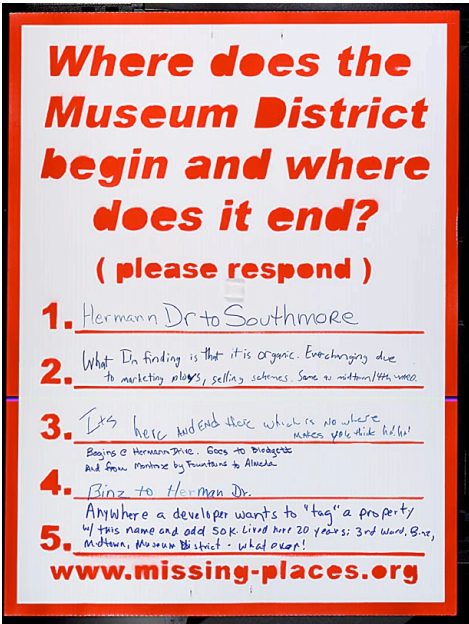 Where does the
Museum District
begin and where
does it end?
( please respond )
1. Hermann Dr to Southmore
2. What I'm finding is that it is organic. Everchanging due
to marketing ploys, selling schemes. Same as midtown/4th ward.
3. Its here AND END there which is NO where
MAKES you think ha! ha!
Begins @ Hermann Drive. Goes to Blodgett
And from Montrose by Fountains to Almeda
4. Binz to Herman Dr.
Anywhere a developer wants to "tag" a property
5. w/ this name and add 50K. Lived here 20 years; 3rd Ward, Binz,
Midtown, Museum District - what ever!
www.missing-places.org